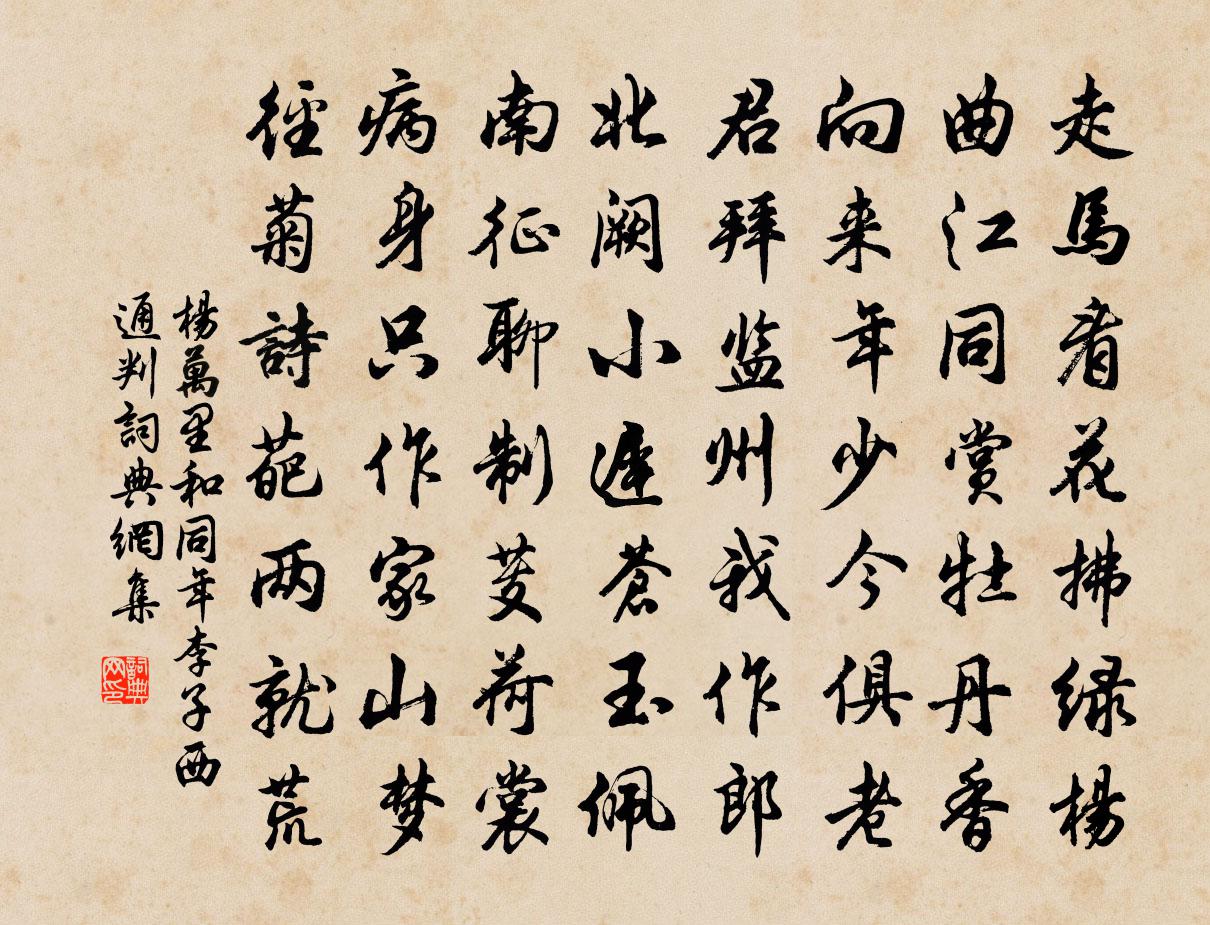 走馬看花拂緑楊
曲江同赏牡丹香
向来年少今俱老
君拜监州我作郎
北阙小遲蒼玉佩
南征聊制芰荷裳
病身只作家山梦
徑菊詩葩两就荒
楊萬里和同年李子西
通判詞典網集
詞典网印